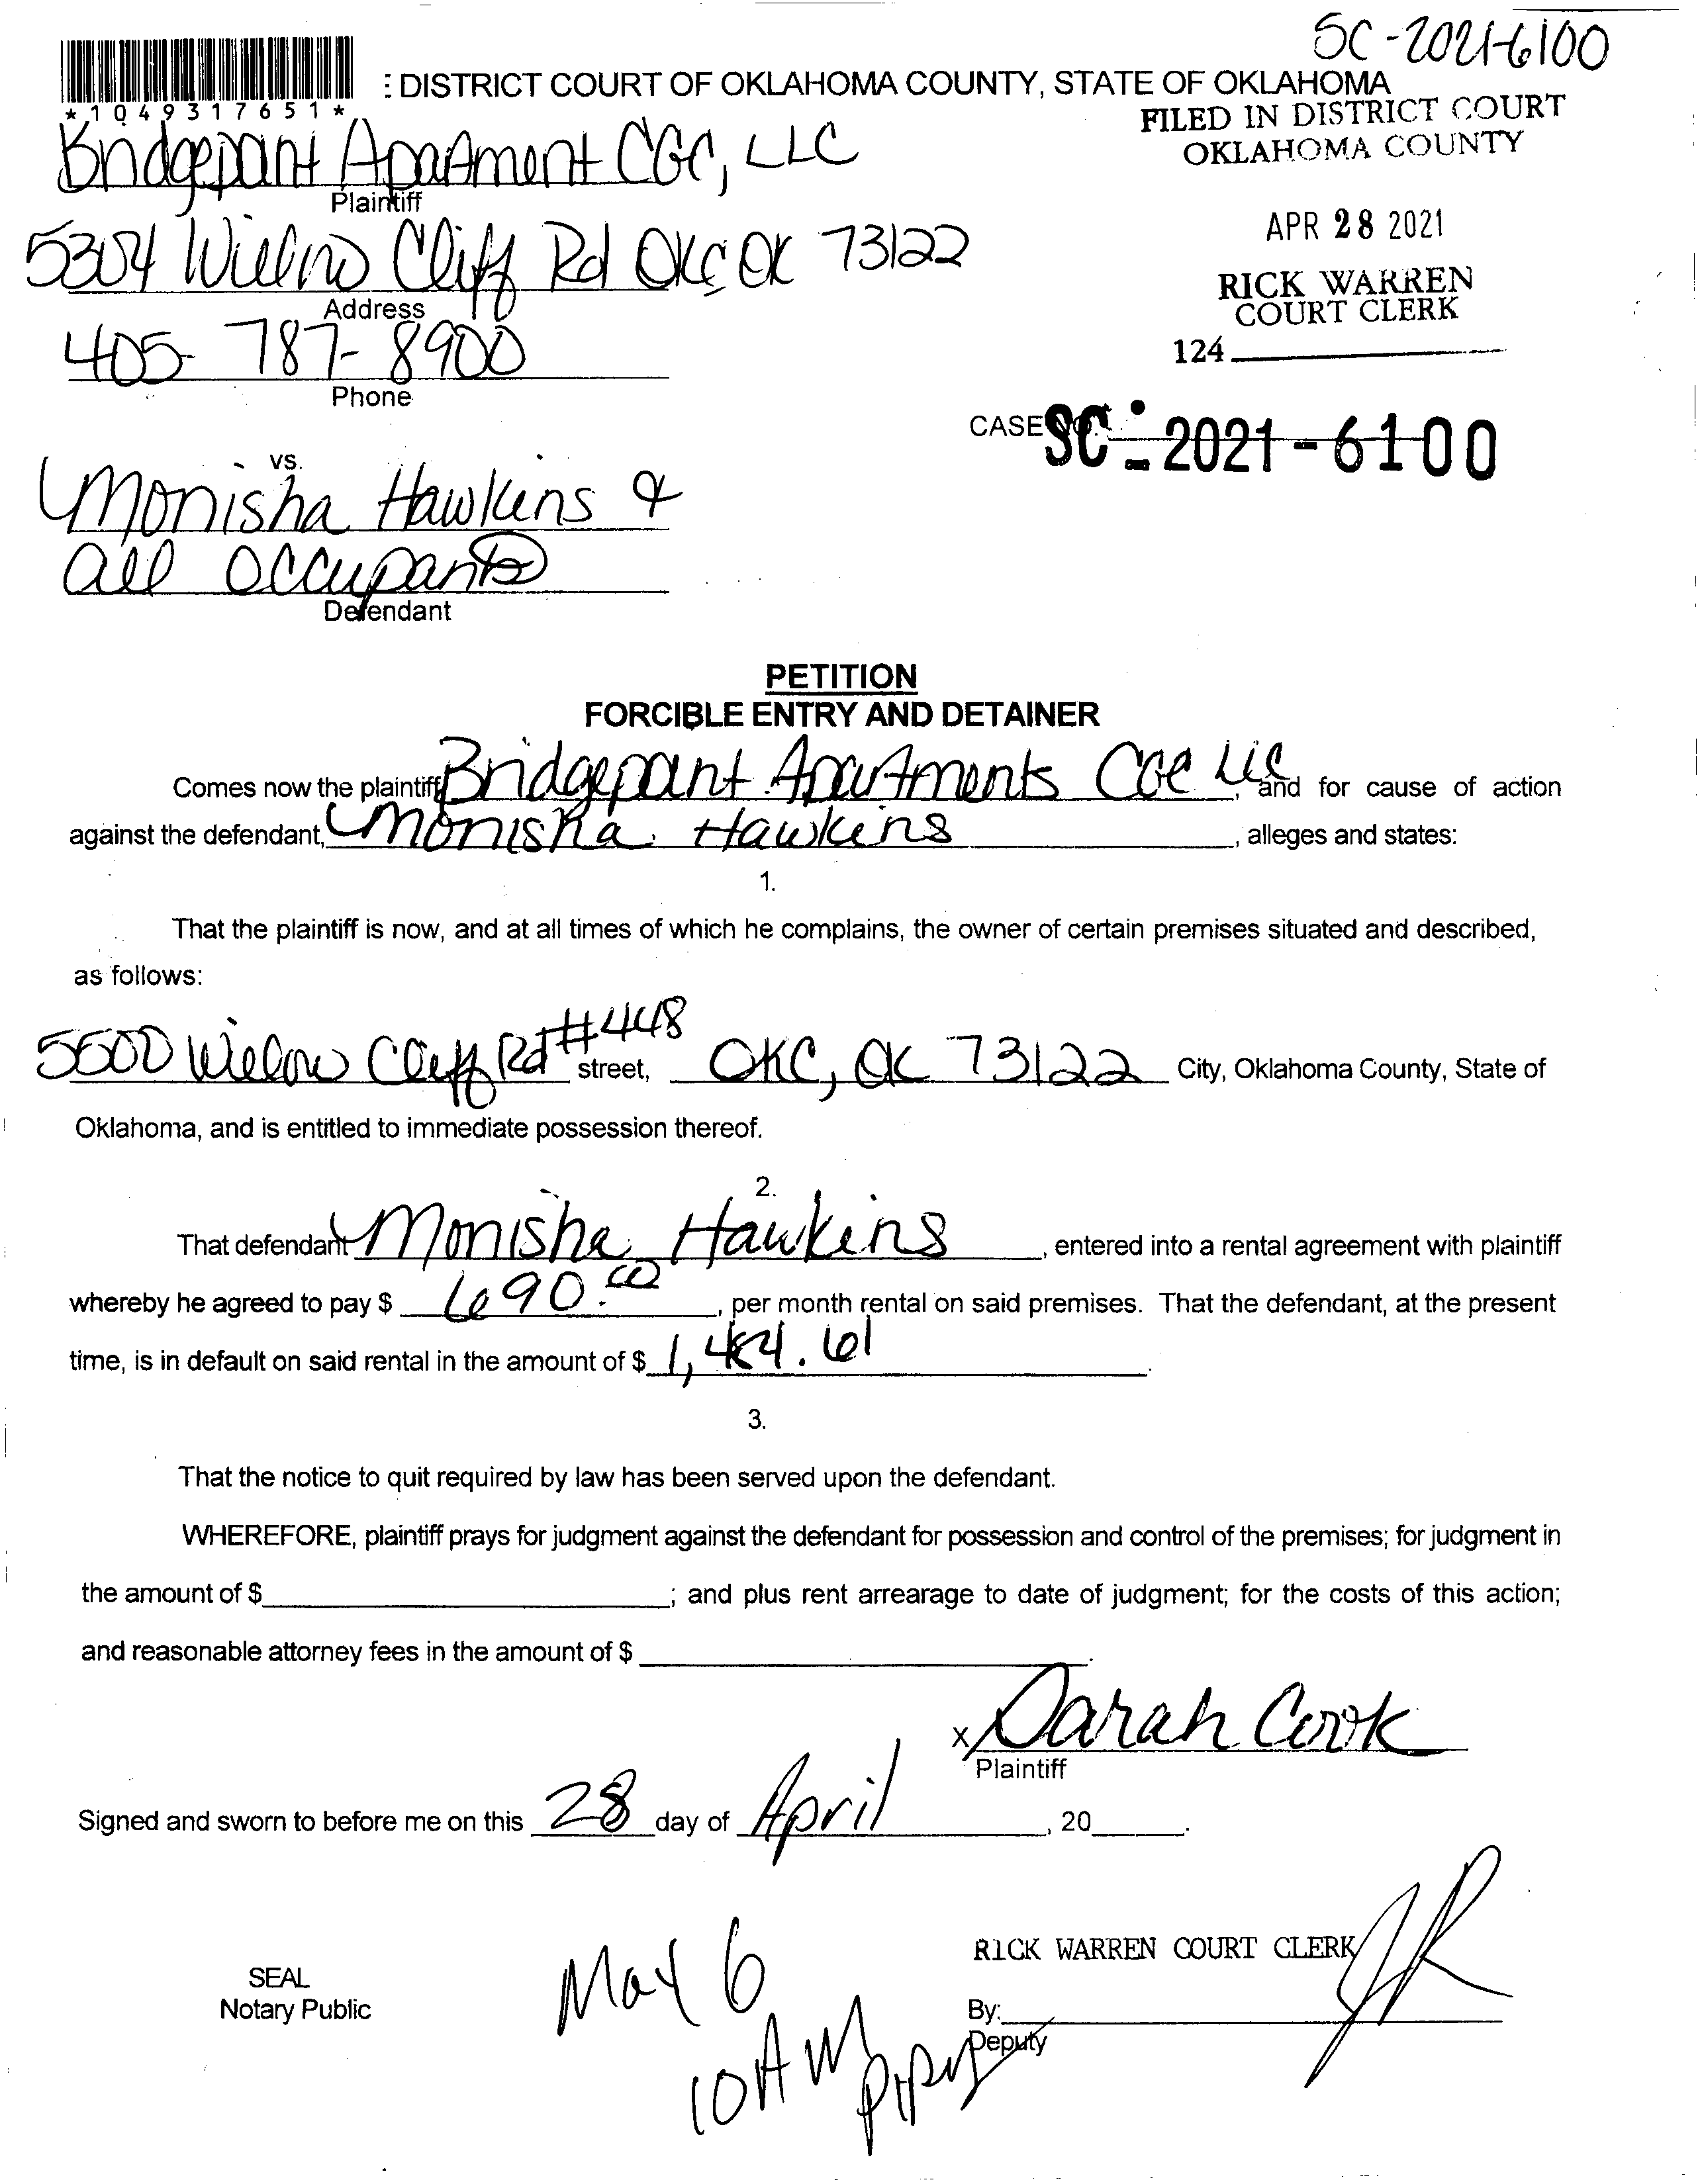 SC-2021-6100
: DISTRICT COURT OF OKLAHOMA COUNTY, STATE OF OKLAHOMA
*1049317651*
FILED IN DISTRICT COURT
OKLAHOMA COUNTY
Bridgepoint Apartment CGC, LLC
Plaintiff
APR 28 2021
5304 Willow Cliff Rd OKC OK 73122
Address
RICK WARREN
COURT CLERK
405-787-8900
Phone
124
CASE NO. SC-2021-6100
vs.
Monisha Hawkins &
all occupants
Defendant
PETITION
FORCIBLE ENTRY AND DETAINER
Comes now the plaintiff Bridgepoint Apartments CGC LLC, and for cause of action
against the defendant, Monisha Hawkins, alleges and states:
1.
That the plaintiff is now, and at all times of which he complains, the owner of certain premises situated and described,
as follows:
5600 Willow Cliff Rd #448 street, OKC, OK 73122 City, Oklahoma County, State of
Oklahoma, and is entitled to immediate possession thereof.
2.
That defendant Monisha Hawkins, entered into a rental agreement with plaintiff
whereby he agreed to pay $ 690.00, per month rental on said premises. That the defendant, at the present
time, is in default on said rental in the amount of $ 1,484.61.
3.
That the notice to quit required by law has been served upon the defendant.
WHEREFORE, plaintiff prays for judgment against the defendant for possession and control of the premises; for judgment in
the amount of $; and plus rent arrearage to date of judgment; for the costs of this action;
and reasonable attorney fees in the amount of $.
x Sarah Cook
Plaintiff
Signed and sworn to before me on this 28 day of April, 20.
RICK WARREN COURT CLERK
SEAL
Notary Public
By:
Deputy
May 6
10AM